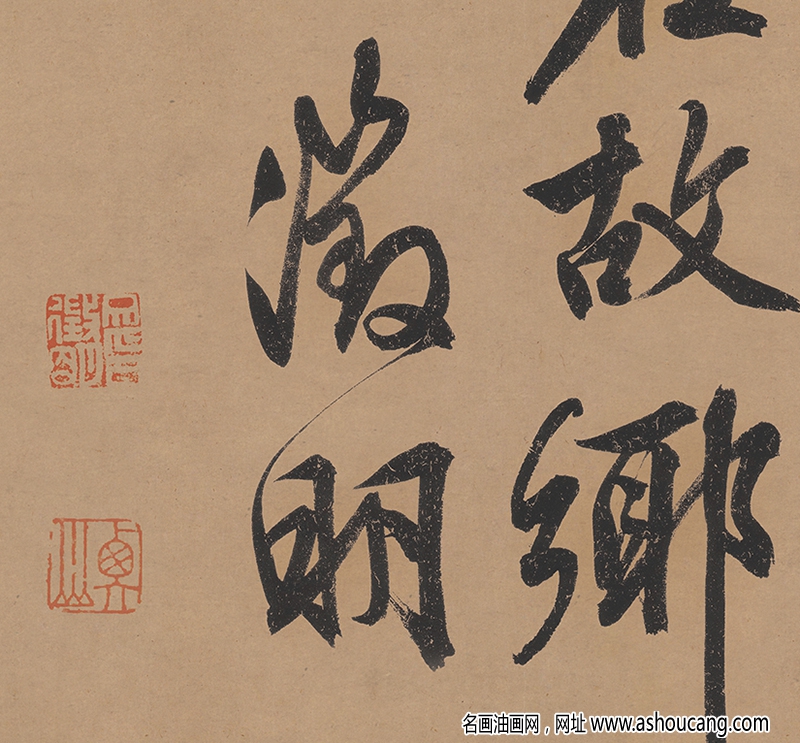 在故鄉
徵明
徵明印
衡山
名画油画网，网址 www.ashoucang.com